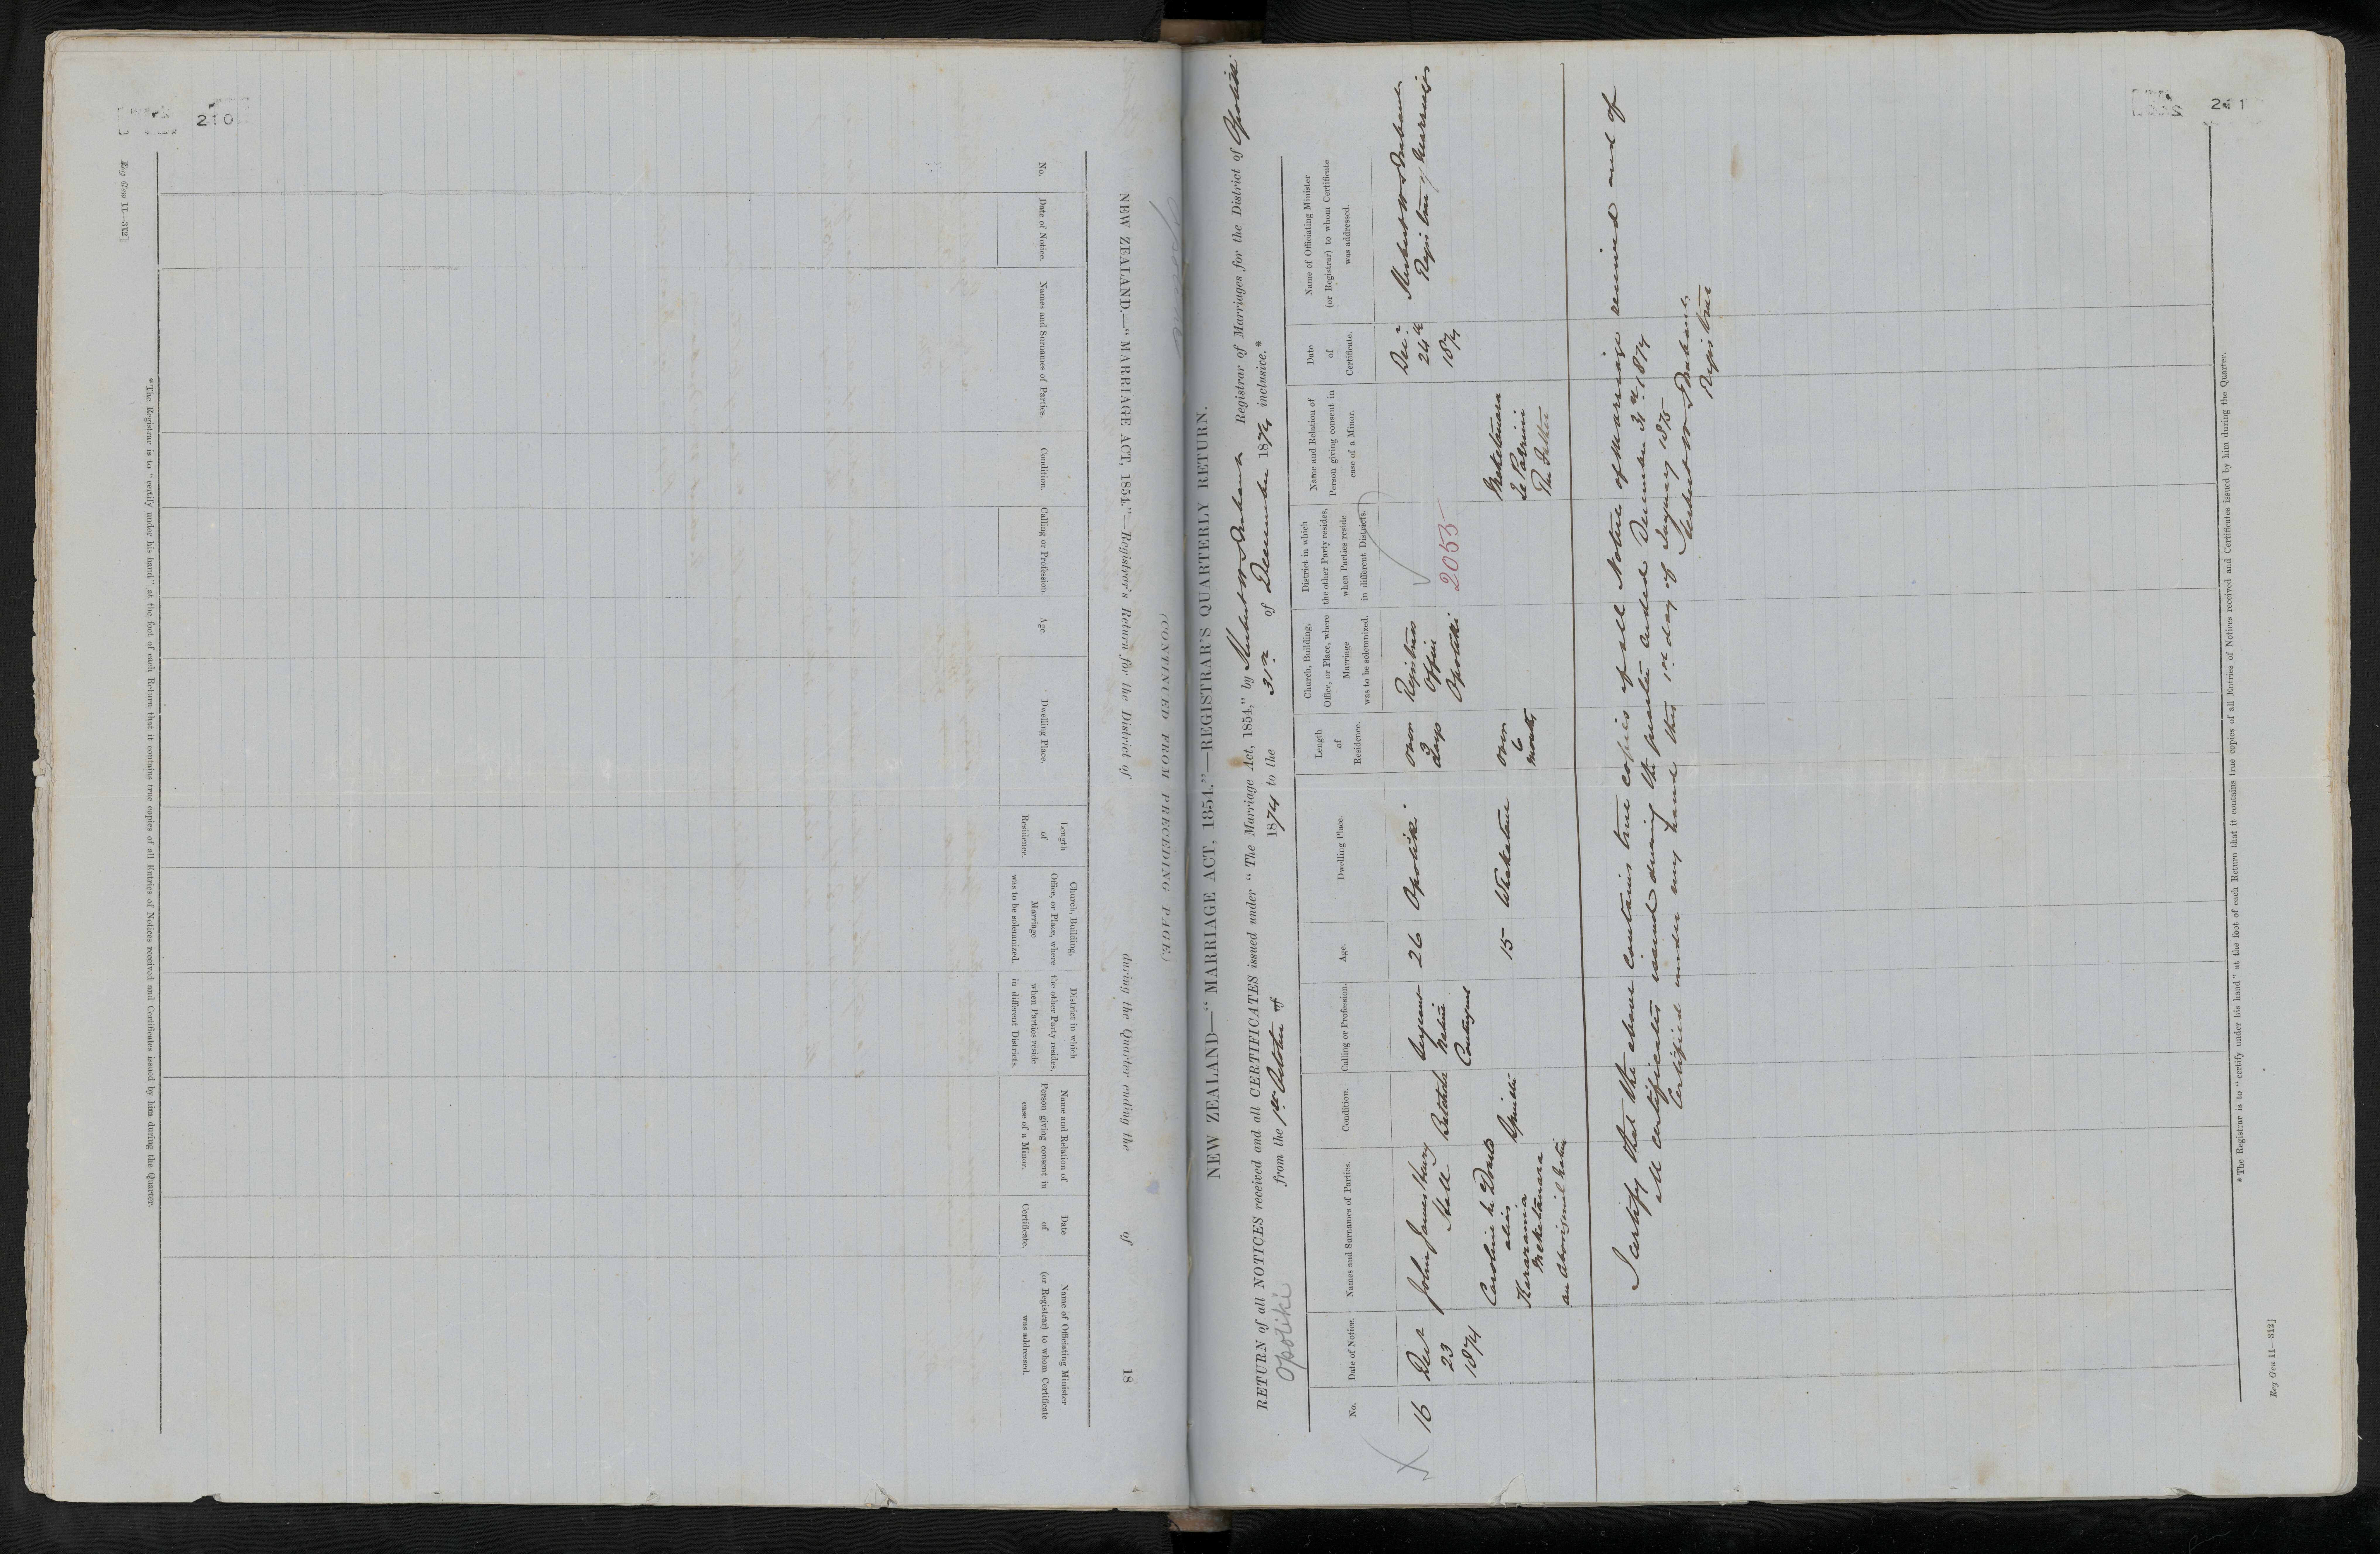 210
Reg Gen 11—312]
NEW ZEALAND.—“MARRIAGE ACT, 1854.”—Registrar's Return for the District of during the Quarter ending the of 18
No.
Date of Notice.
Names and Surnames of Parties.
Condition.
Calling or Profession.
Age.
Dwelling Place.
Length
of
Residence.
Church, Building,
Office, or Place, where
Marriage
was to be solemnized.
District in which
the other Party resides,
when Parties reside
in different Districts.
Name and Relation of
Person giving consent in
case of a Minor.
Date
of
Certificate.
Name of Officiating Minister
(or Registrar) to whom Certificate
was addressed.
*The Registrar is to “certify under his hand” at the foot of each Return that it contains true copies of all Entries of Notices received and Certificates issued by him during the Quarter.
(CONTINUED FROM PRECEDING PAGE.)
211
NEW ZEALAND—“MARRIAGE ACT, 1854.”—REGISTRAR'S QUARTERLY RETURN.
RETURN of all NOTICES received and all CERTIFICATES issued under “The Marriage Act, 1854,” by Herbert W Brabant Registrar of Marriages for the District of Opotiki
Opotiki
from the 1st October of 1874 to the 31st of December 1874 inclusive.*
No.
Date of Notice.
Names and Surnames of Parties.
Condition.
Calling or Profession.
Age.
Dwelling Place.
Length
of
Residence.
Church, Building,
Office, or Place, where
Marriage
was to be solemnized.
District in which
the other Party resides,
when Parties reside
in different Districts.
Name and Relation of
Person giving consent in
case of a Minor.
Date
of
Certificate.
Name of Officiating Minister
(or Registrar) to whom Certificate
was addressed.
16
Decr
23
1874
John James Henry
Hall
Bachelor
Sergeant
Native
Contingent
26
Opotiki.
over
3
days
Registrars
Office
Opotiki.
2053
Decr
24th
1874
Herbert W Brabant
Registrar of Marriages
Caroline
alias
Mekotanara
an Aboriginal Native
Spinster
15
Whakatane
over
6
months
Meketanara
The Father
I certify that the above contains true copies of all Notices of Marriage received and of
all certificates issued during the quarter ended December 31st 1874
Certified under my hand this 1st day of January 1875
Herbert W Brabant,
Registrar
*The Registrar is to “certify under his hand” at the foot of each Return that it contains true copies of all Entries of Notices received and Certificates issued by him during the Quarter.
Reg Gen 11—312]